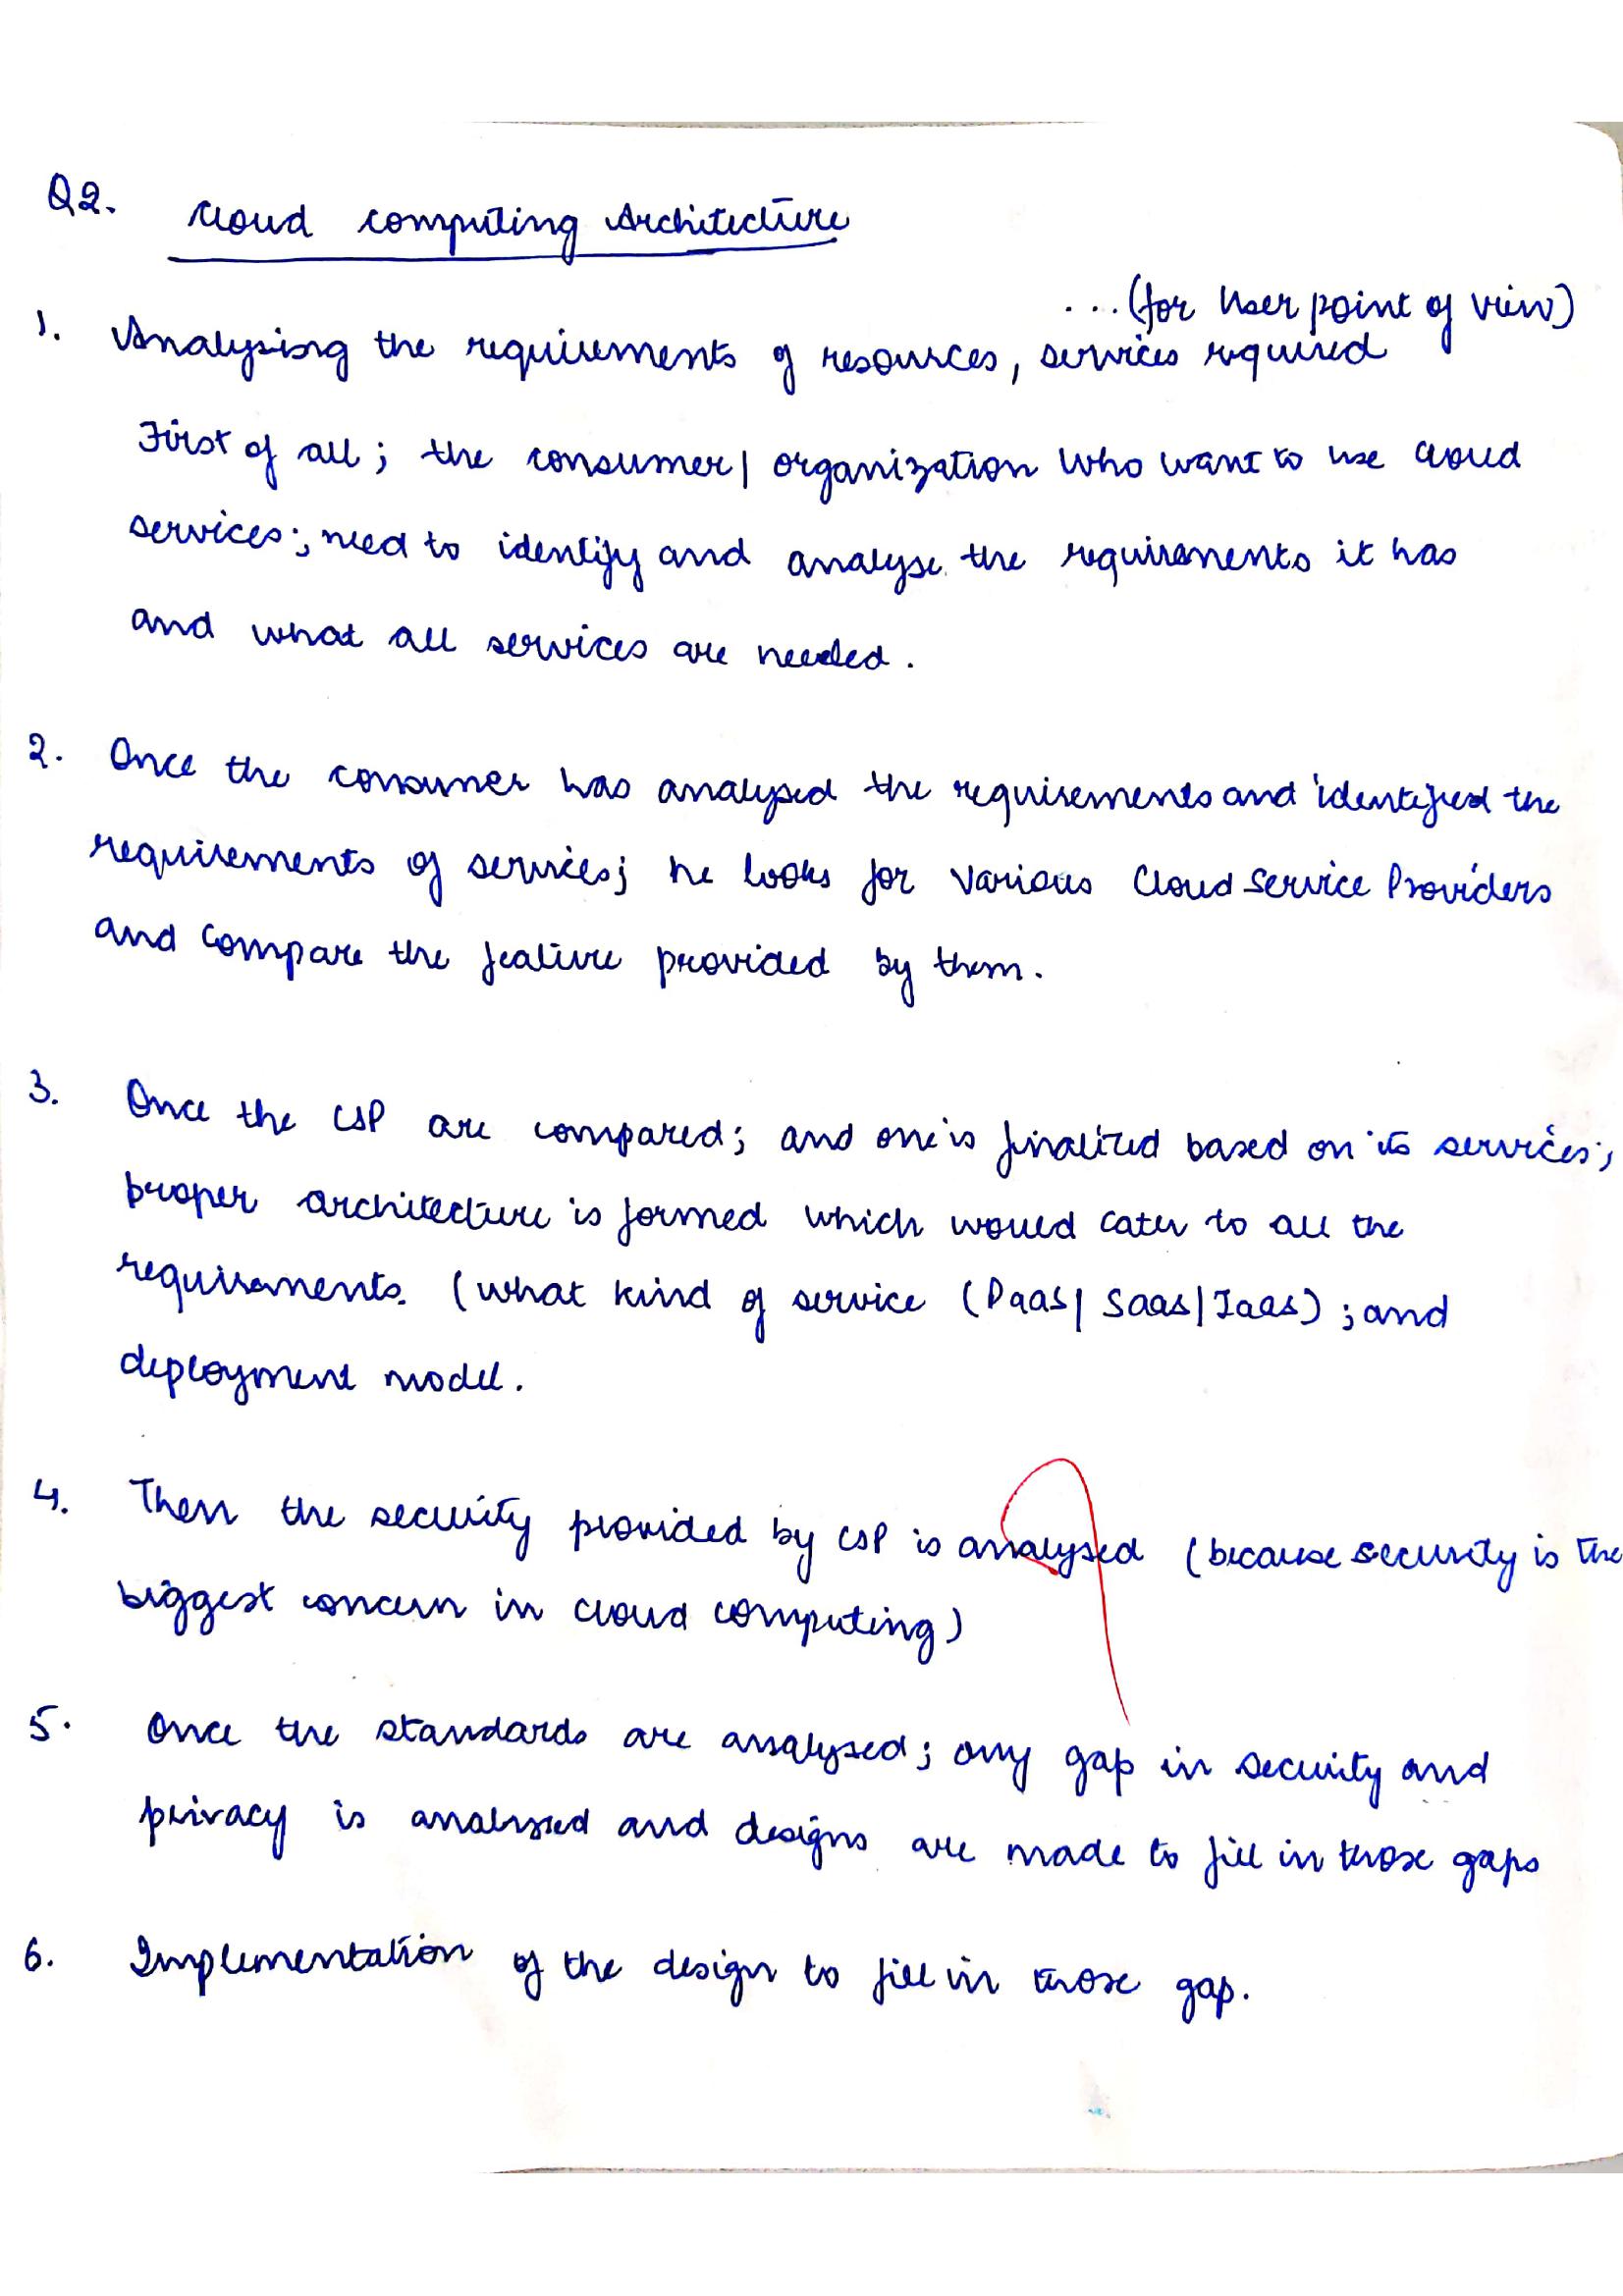 Q2. Cloud computing Architecture
...(for User point of view)
1. Analysing the requirements of resources, services required
First of all; the consumer/ organization who want to use cloud
services; need to identify and analyse the requirements it has
and what all services are needed.
2. Once the consumer has analysed the requirements and identified the
requirements of services; he looks for various Cloud Service Providers
and compare the feature provided by them.
3. Once the CSP are compared; and one is finalized based on its services;
proper architecture is formed which would cater to all the
requirements. (what kind of service (PaaS/ SaaS/IaaS) ; and
deployment model.
4. Then the security provided by CSP is analysed (because security is the
biggest concern in cloud computing)
5. Once the standards are analysed; any gap in security and
privacy is analysed and designs are made to fill in those gaps
6. Implementation of the design to fill in those gap.